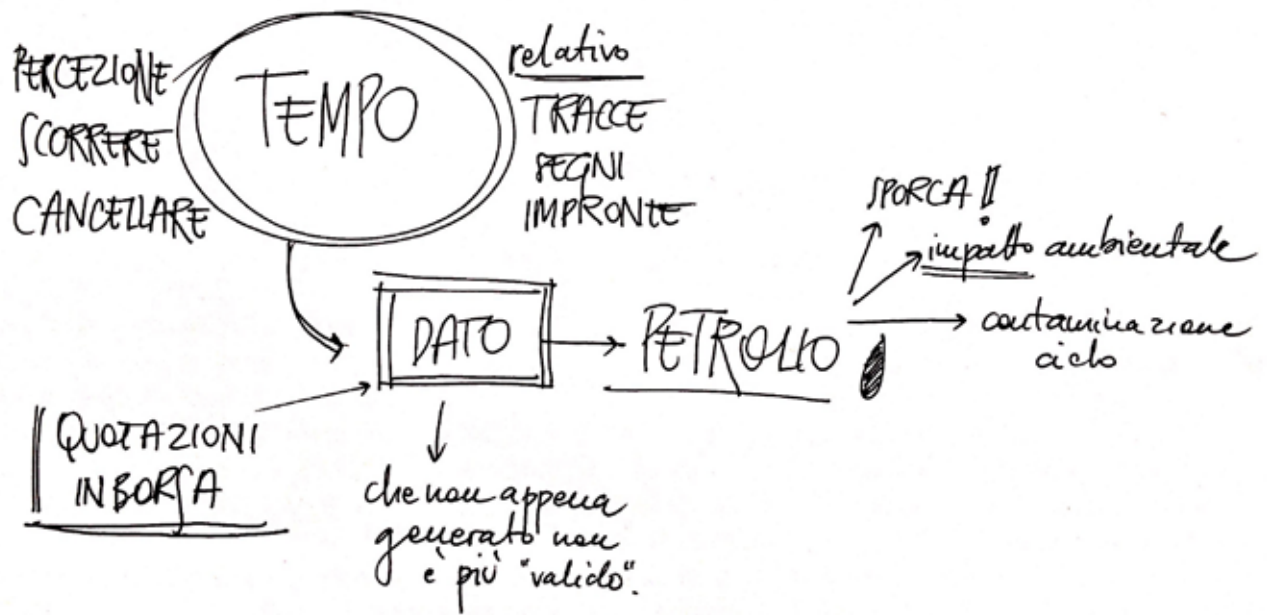 PERCEZIONE
SCORRERE
CANCELLARE
TEMPO
relativo
TRACCE
SEGNI
IMPRONTE
SPORCA!!
impatto ambientale
contaminazione
ciclo
DATO
PETROLIO
QUOTAZIONI
IN BORSA
che non appena
generato non
è più "valido".